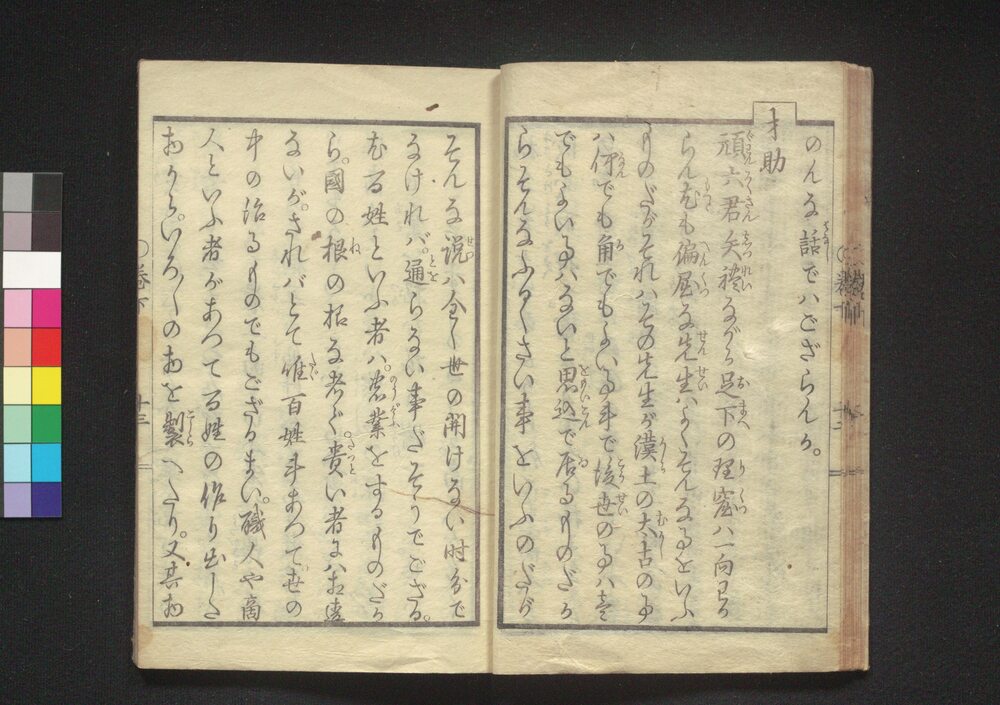 のんな話でハござらんか。
才助
頑六君失禮ながら足下の理窟ハ一向わか
らん尤も偏屈な先生ハよくそんな事をいふ
ものだがそれハその先生が漢土の太古の事
ハ何でも角でもよい事斗で後世の事ハ壱
でもよい事ハないと思込で居るものだか
らそんなふるくさい事をいふのだが
そんな説ハ全く世の開けない時分で
なけれバ通らない事だそうでござる。
尤百姓といふ者ハ。農業をするものだか
ら。國の根の様な者で。貴い者にハ相違
ないが。されバとて唯百姓斗あつて世の
中の治るものでもござるまい。職人や商
人といふ者があつて百姓の作り出した
物から。いろ〱の物を製へたり。又其物